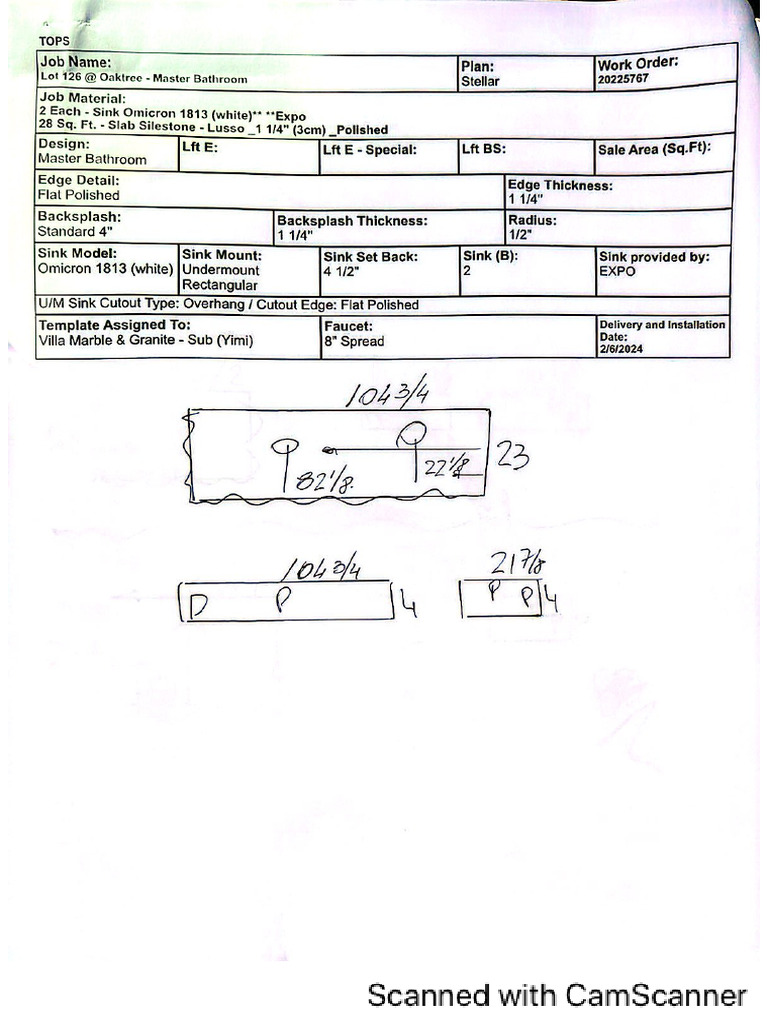 TOPS
Job Name:
Lot 126 @ Oaktree - Master Bathroom
Plan:
Stellar
Work Order:
20225767
Job Material:
2 Each - Sink Omicron 1813 (white)** **Expo
28 Sq. Ft. - Slab Silestone - Lusso _1 1/4" (3cm) _Polished
Design:
Master Bathroom
Lft E:
Lft E - Special:
Lft BS:
Sale Area (Sq.Ft):
Edge Detail:
Flat Polished
Edge Thickness:
1 1/4"
Backsplash:
Standard 4"
Backsplash Thickness:
1 1/4"
Radius:
1/2"
Sink Model:
Omicron 1813 (white)
Sink Mount:
Undermount
Rectangular
Sink Set Back:
4 1/2"
Sink (B):
2
Sink provided by:
EXPO
U/M Sink Cutout Type: Overhang / Cutout Edge: Flat Polished
Template Assigned To:
Villa Marble & Granite - Sub (Yimi)
Faucet:
8" Spread
Delivery and Installation
Date:
2/6/2024
104 3/4
82 1/8.
22 1/8
23
104 3/4
P P 4
21 7/8
P P 4
Scanned with CamScanner